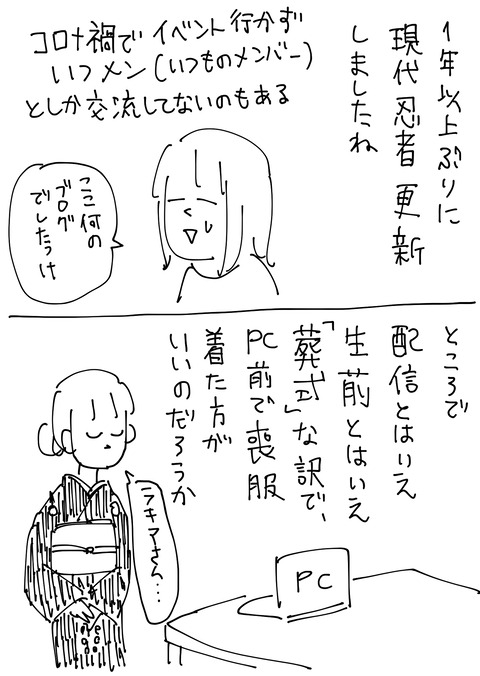 1年以上ぶりに
現代忍者 更新
しましたね
コロナ禍で イベント行かず
いつメン(いつものメンバー)
としか交流してないのもある
ここ何の
ブログ
でしたっけ
ところで
配信とはいえ
生前とはいえ
「葬式」な訳で、
PC前で喪服
着た方が
いいのだろうか
ラキアさん…
PC